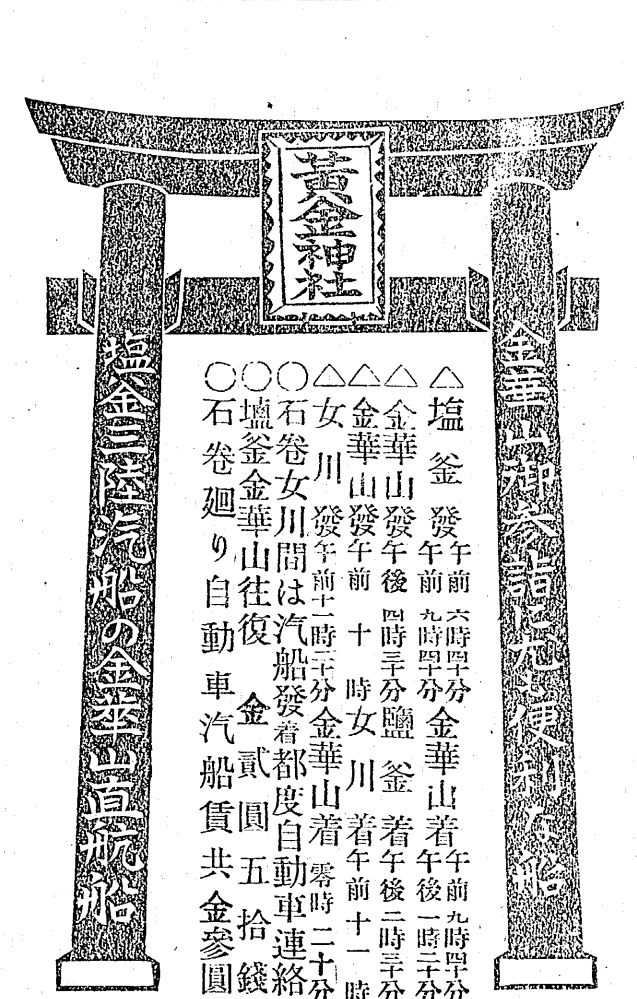 黄金神社
金華山御参詣に尤も便利な船
△塩釜發午前六時四十分金華山着午前九時四十分
午前九時四十分 午後一時二十分
△金華山發午後四時三十分鹽釜着午後二時三十分
△金華山發午前十時女川着午前十一時
△女川發午前十一時二十分金華山着零時二十分
○石巻女川間は汽船發着都度自動車連絡
○塩釜金華山往復金貳圓五拾錢
○石巻廻り自動車汽船賃共金參圓
塩釜三陸汽船の金華山直航船